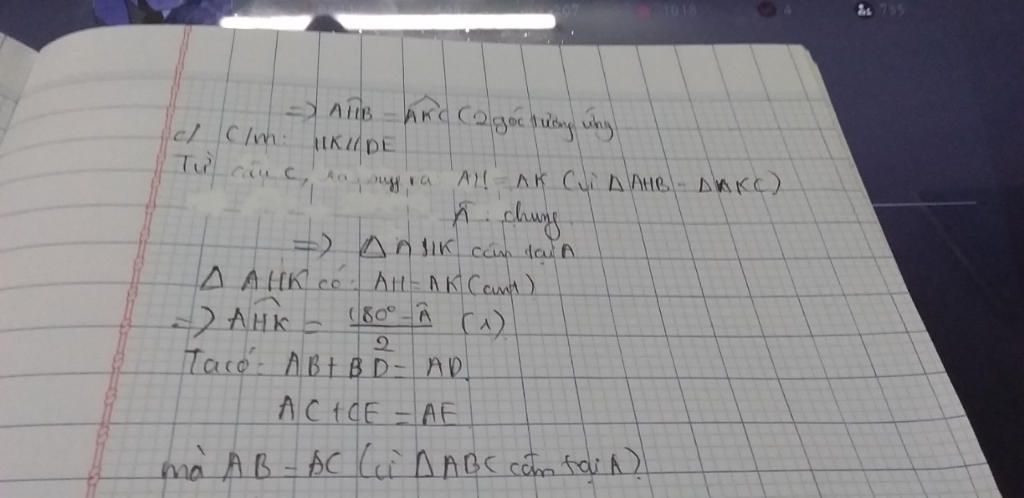 => AĤB = AK̂C (2 góc tương ứng
c/ C/m: HK//DE
Từ câu c, ta, suy ra AH = AK (vì Δ AHB = ΔAKC)
Â: chung
=> Δ AHK cân tại A
Δ AHK có: AH=AK(cmt)
=> AĤK = (180° - Â)/2 (1)
Ta có: AB + BD = AD
AC + CE = AE
mà AB = AC (vì ΔABC cân tại A)
1018
4
755